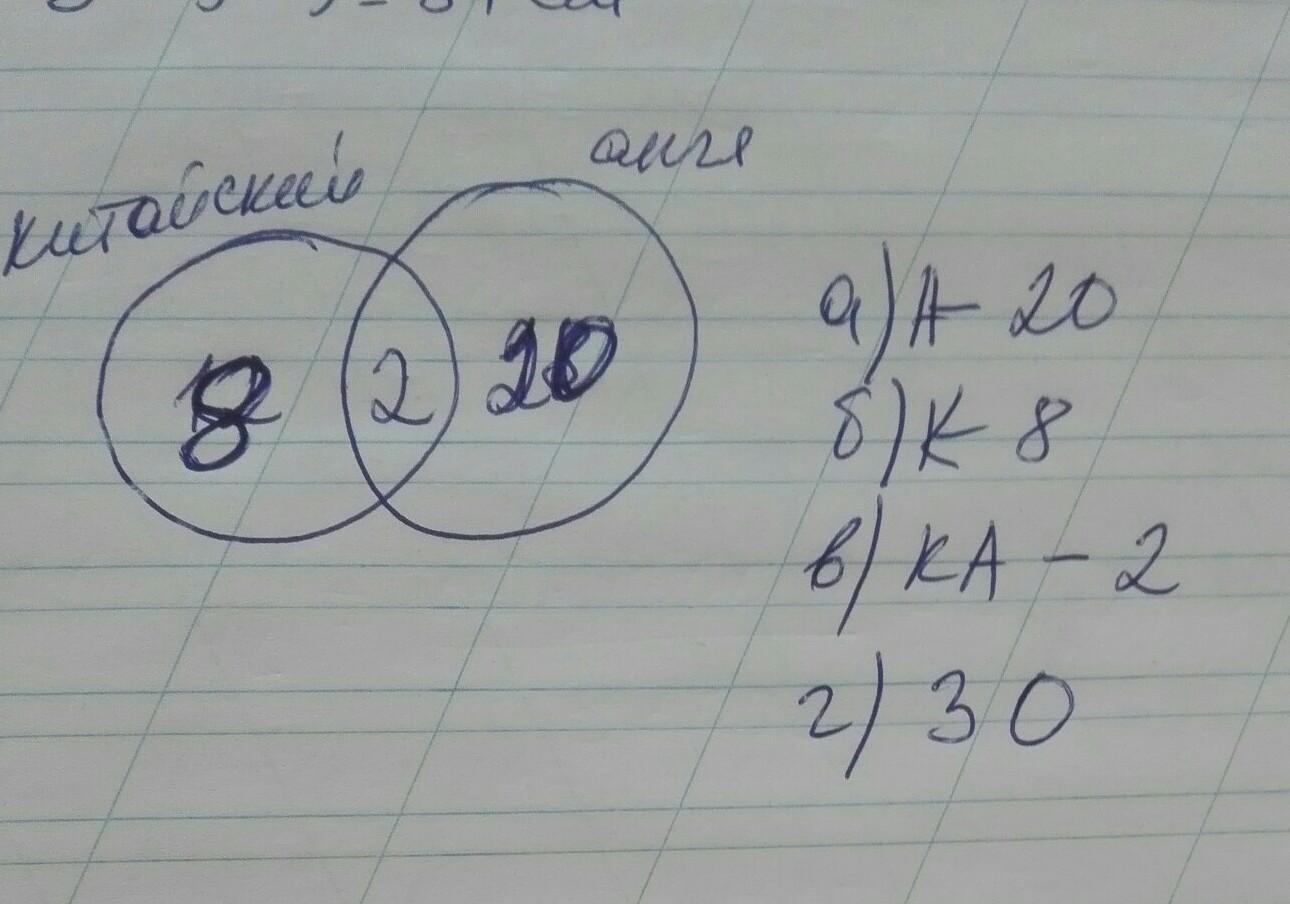 китайский
англ
8 2 20
а) А - 20
б) К - 8
в) КА - 2
г) 30